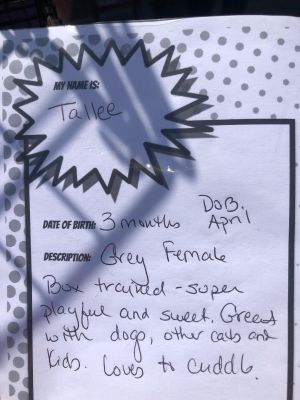 MY NAME IS:
Tallee
DOB.
DATE OF BIRTH: 3 months April
DESCRIPTION: Grey Female
Box trained - super
playful and sweet. Greeat
with dogs, other cats and
Kids. Loves to cuddle.